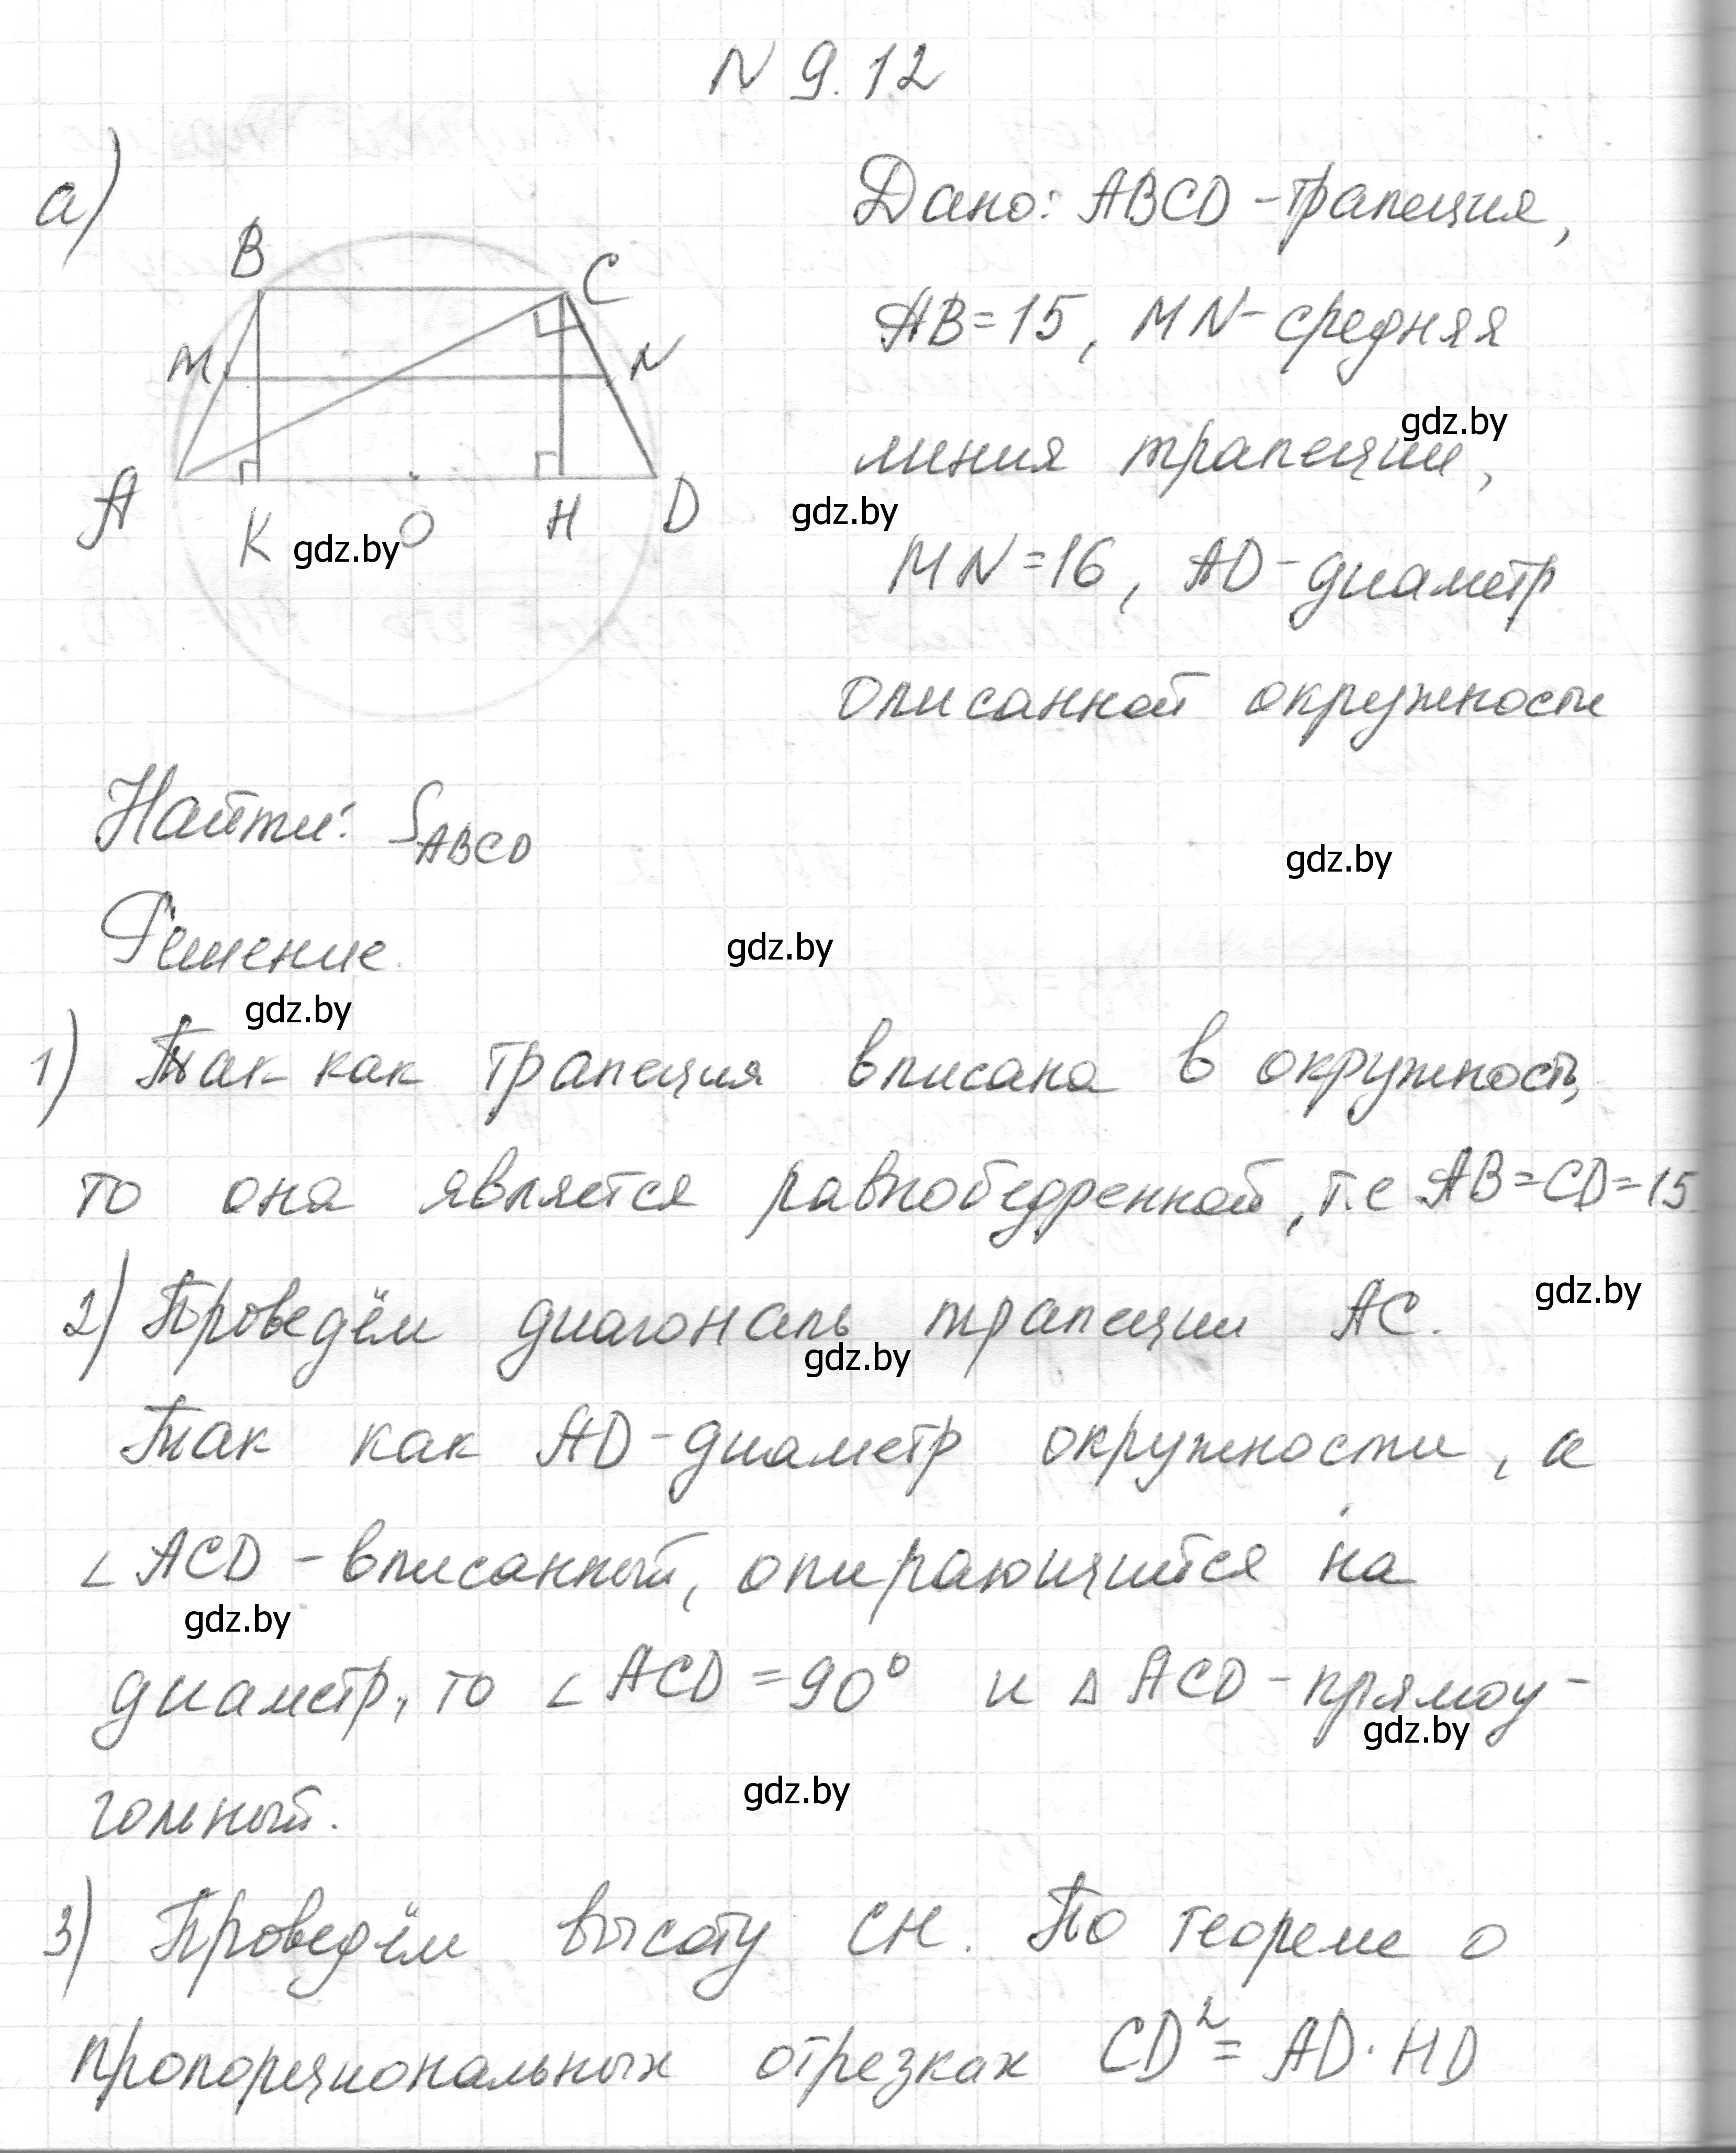 N 9.12
а)
Дано: ABCD - трапеция,
B
C
AB = 15, MN - средняя
M
N
gdz.by
линия трапеции,
A
K
O
H
D
gdz.by
gdz.by
MN = 16, AD - диаметр
описанной окружности
Найти: S ABCD
gdz.by
Решение.
gdz.by
gdz.by
1) Так как трапеция вписана в окружность,
то она является равнобедренной, т.е AB = CD = 15.
2) Проведём диагональ трапеции AC.
gdz.by
gdz.by
Так как AD - диаметр окружности, а
∠ACD - вписанный, опирающийся на
gdz.by
диаметр, то ∠ACD = 90° и △ACD - прямоу-
gdz.by
гольный.
gdz.by
3) Проведём высоту CH. По теореме о
пропорциональных отрезках CD² = AD · HD